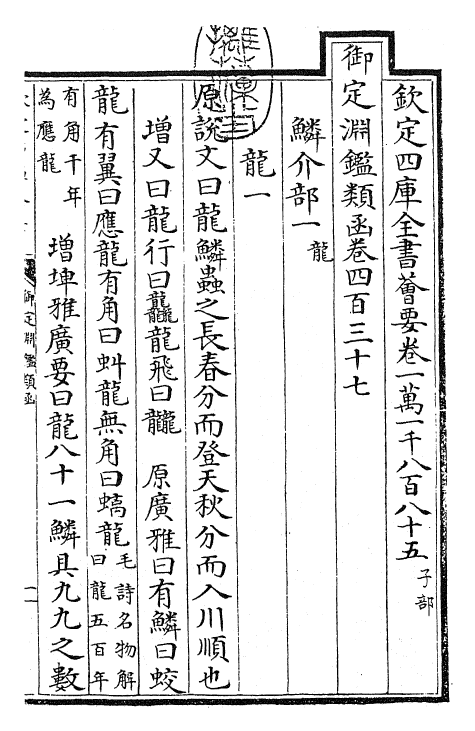 欽定四庫全書薈要卷一萬一千八百八十五 子部
御定淵鑑類函卷四百三十七
鱗介部一 龍
龍一
原說文曰龍鱗蟲之長春分而登天秋分而入川順也
增又曰龍行曰龘龍飛曰龖 原廣雅曰有鱗曰蛟
龍有翼曰應龍有角曰虯龍無角曰螭龍 毛詩名物解
曰龍五百年
有角千年
為應龍 增埤雅廣要曰龍八十一鱗具九九之數
御定淵鑑類函
一